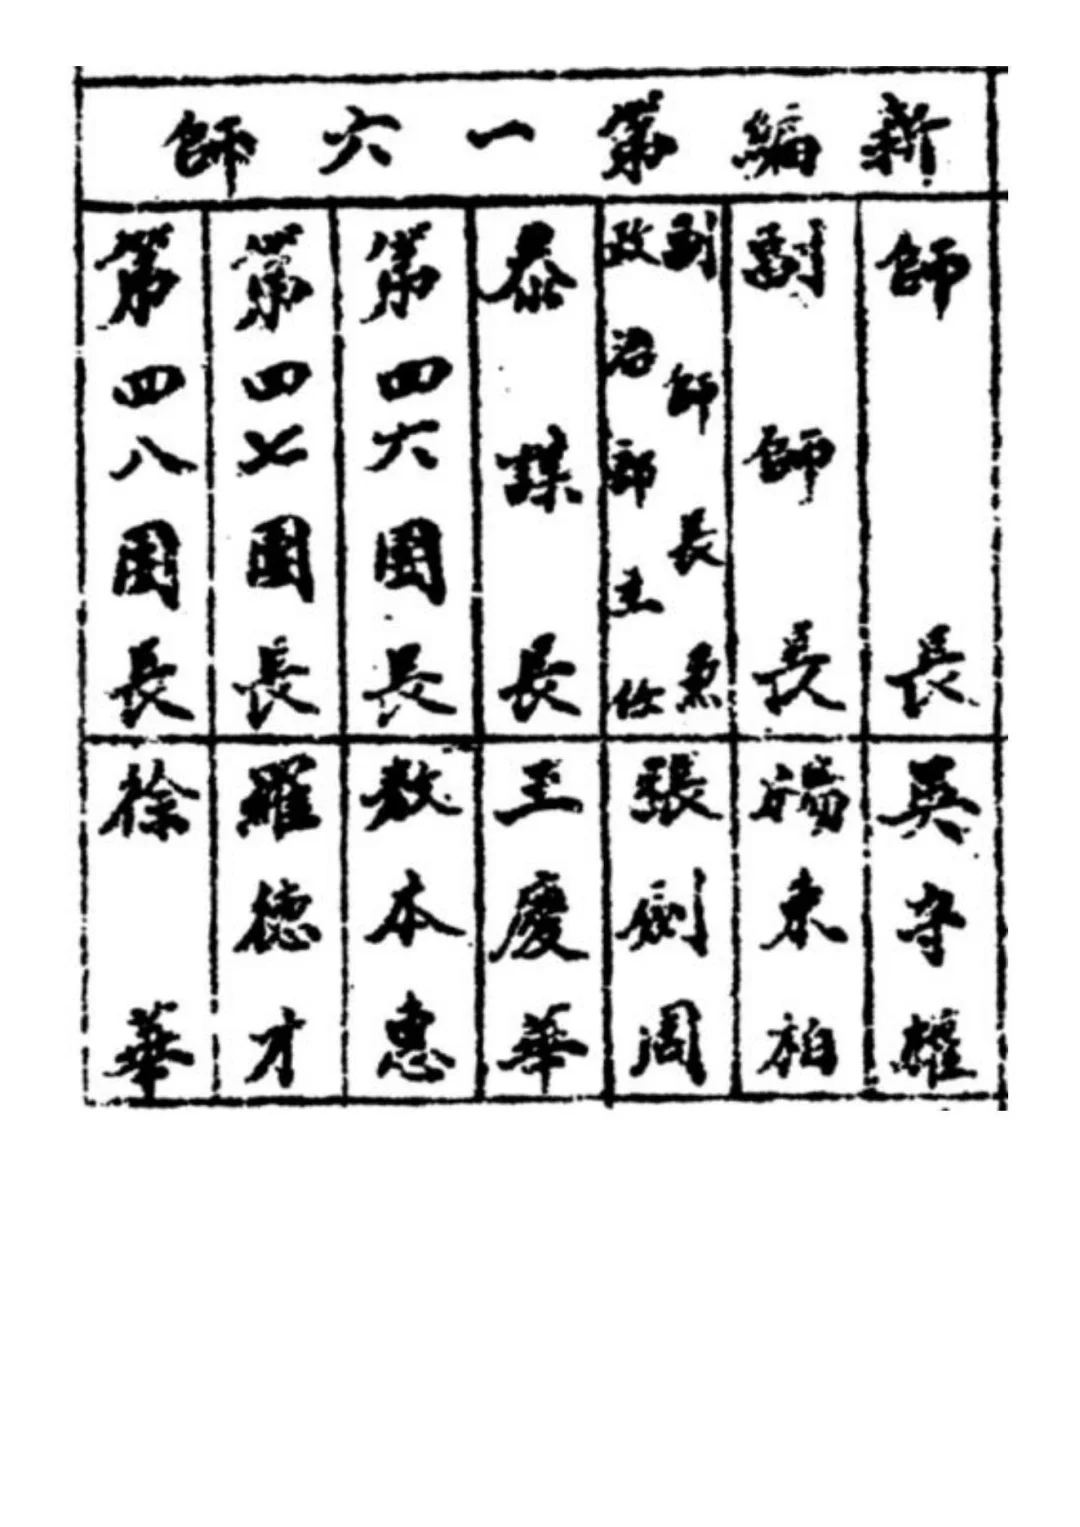 新編第一六師
師長
吳守權
副師長
楊東柏
副師長兼
政治部主任
張劍周
參謀長
王慶華
第四六團長
敖本惠
第四七團長
羅德才
第四八團長
徐華